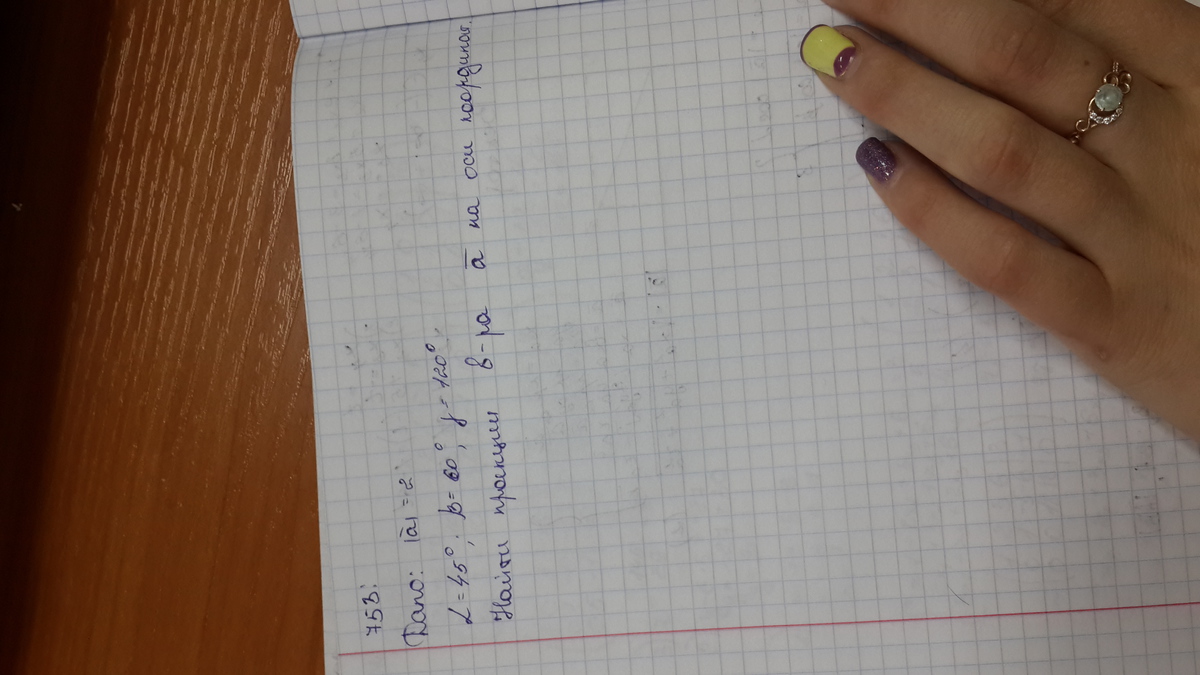 753:
Дано: |a̅| = 2
α = 45°; β = 60°, γ = 120°.
Найти проекции в-ра a̅ на оси координат.